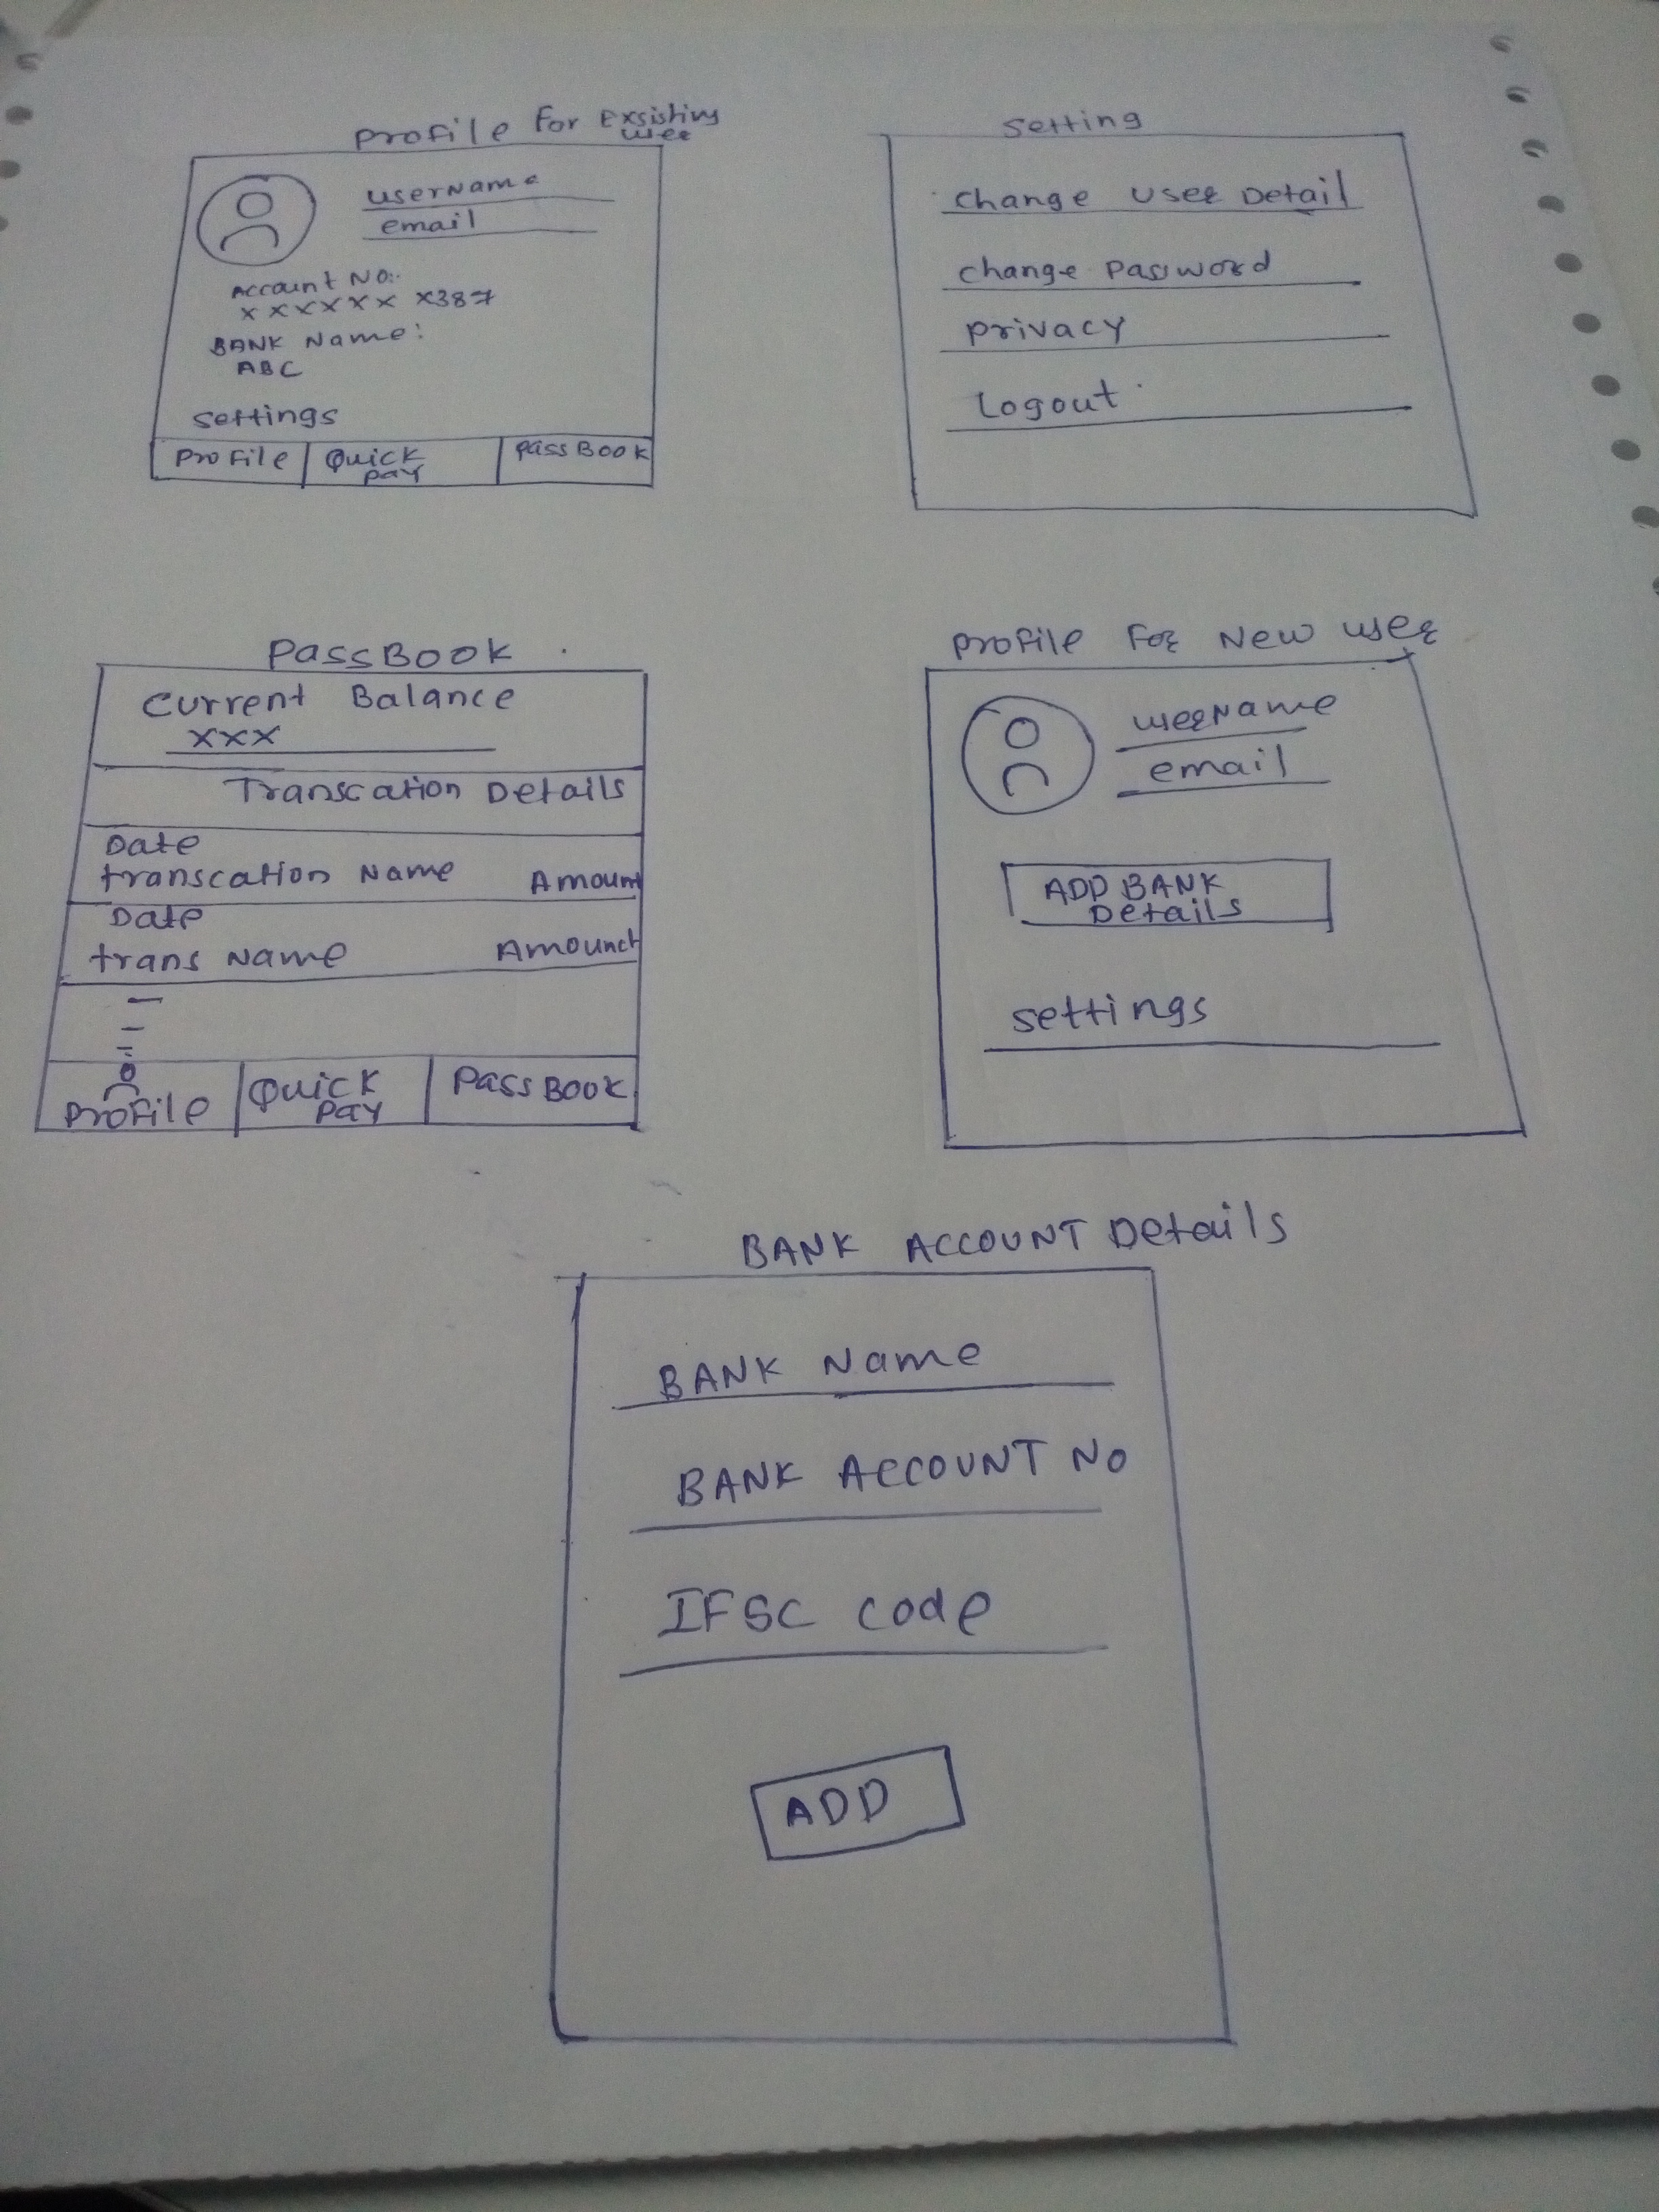 Profile For Exsisting
user
username
email
Account No:
xxxxxx x387
BANK Name:
ABC
settings
Profile
Quick
Pay
PassBook
Setting
Change User Detail
Change Password
Privacy
Logout
PassBook
Current Balance
xxx
Transcation Details
Date
transcation Name Amount
Date
trans Name Amounct
Profile
Quick
Pay
PassBook
Profile For New User
UserName
email
ADD BANK
Details
settings
BANK ACCOUNT Details
BANK Name
BANK ACCOUNT NO
IFSC code
ADD